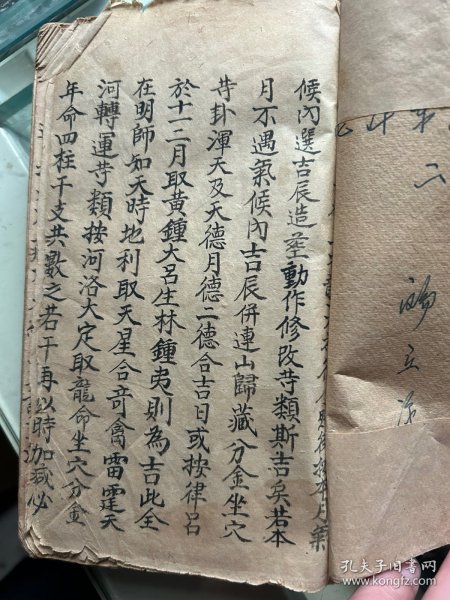 候內選吉辰造塟動作修改䓁類斯吉矣若本
月不遇氣候內吉辰併連山歸藏分金坐穴
䓁卦渾天及天德月德二德合吉日或按律呂
於十一二月取黃鍾大呂生林鍾夷則為吉此全
在明師知天時地利取天星合竒禽雷霆天
河轉運䓁類按河洛大定取龍命坐穴分金
年命四柱干支共數之若干再以時加减必
孔夫子旧书网
www.kongfz.com